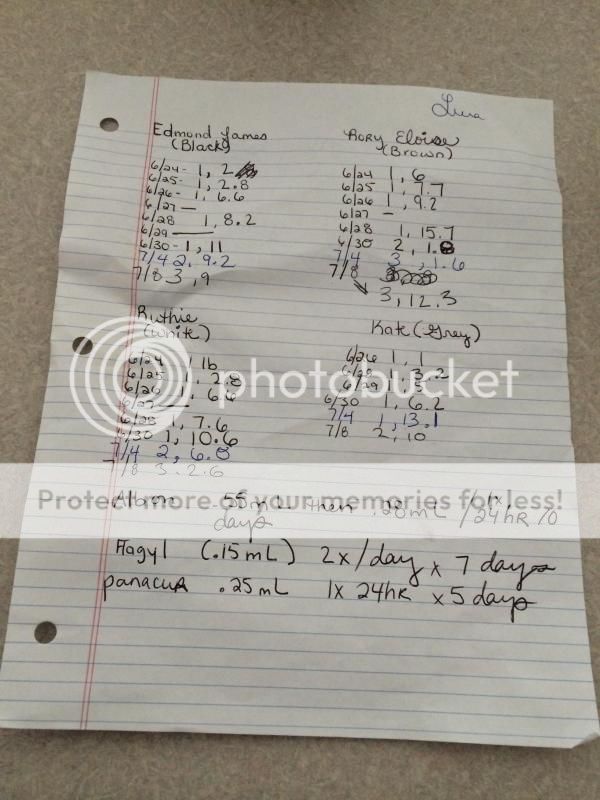 Edmond James
(Black)
6/24- 1, 2
6/25- 1, 2.8
6/26- 1, 6.6
6/27 —
6/28 1, 8.2
6/29 —
6/30- 1, 11
7/4 2, 9.2
7/8 3, 9
Rory Eloise
(Brown)
6/24 1, 6
6/25 1, 7.7
6/26 1, 9.2
6/27 -
6/28 1, 15.7
6/30 2, 1.8
7/4 3, 1.6
7/8
3, 12.3
Ruthie
(White)
6/24 1 lb
6/25 1, 2.8
6/26 1, 6.6
6/27 —
6/28 1, 7.6
6/30 1, 10.6
7/4 2, 6.8
7/8 3. 2.6
Kate (Grey)
6/26 1, 1
6/28 1, 3.2
6/29 1, 5
6/30 1, 6.2
7/4 1, 13.1
7/8 2, 10
photobucket
Protect more of your memories for less!
Albon .55 mL then .28mL / 1x, 24hr 10
days
Flagyl (.15mL) 2x/day x 7 days
panacur .25mL 1x 24hr x 5 days